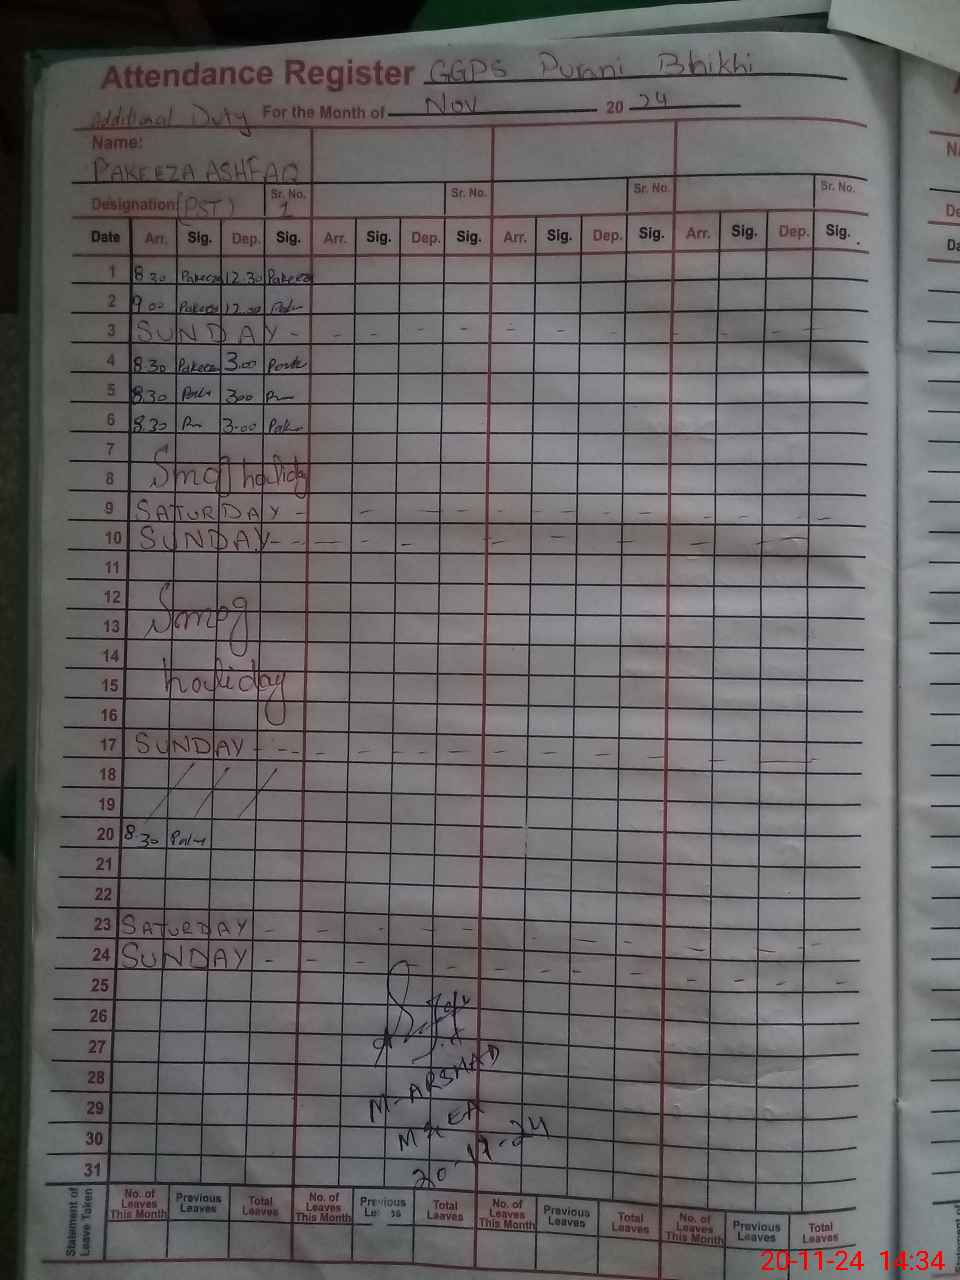 Attendance Register GGPS Purani Bhikhi
Additional Duty For the Month of Nov 20 24
Name:
PAKEEZA ASHFAQ
Designation (PST) Sr. No. 1 Sr. No. Sr. No. Sr. No.
Date Arr. Sig. Dep. Sig. Arr. Sig. Dep. Sig. Arr. Sig. Dep. Sig. Arr. Sig. Dep. Sig.
1 8.30 Pakeeza 12.30 Pakeeza
2 9.00 Pakeeza 12.00
3 SUNDAY
4 8.30 Pakeeza 3.00
5 8.30 3.00
6 8.30 3.00
7
8 Smog holiday
9 SATURDAY
10 SUNDAY
11
12
13 Smog
14
15 holiday
16
17 SUNDAY
18
19
20 8.30
21
22
23 SATURDAY
24 SUNDAY
25
26
27
28 M-ARSHAD
29
30 20-11-24
31
Statement of Leave Taken No. of Leaves This Month Previous Leaves Total Leaves No. of Leaves This Month Previous Leaves Total Leaves No. of Leaves This Month Previous Leaves Total Leaves No. of Leaves This Month Previous Leaves Total Leaves
20-11-24 14:34